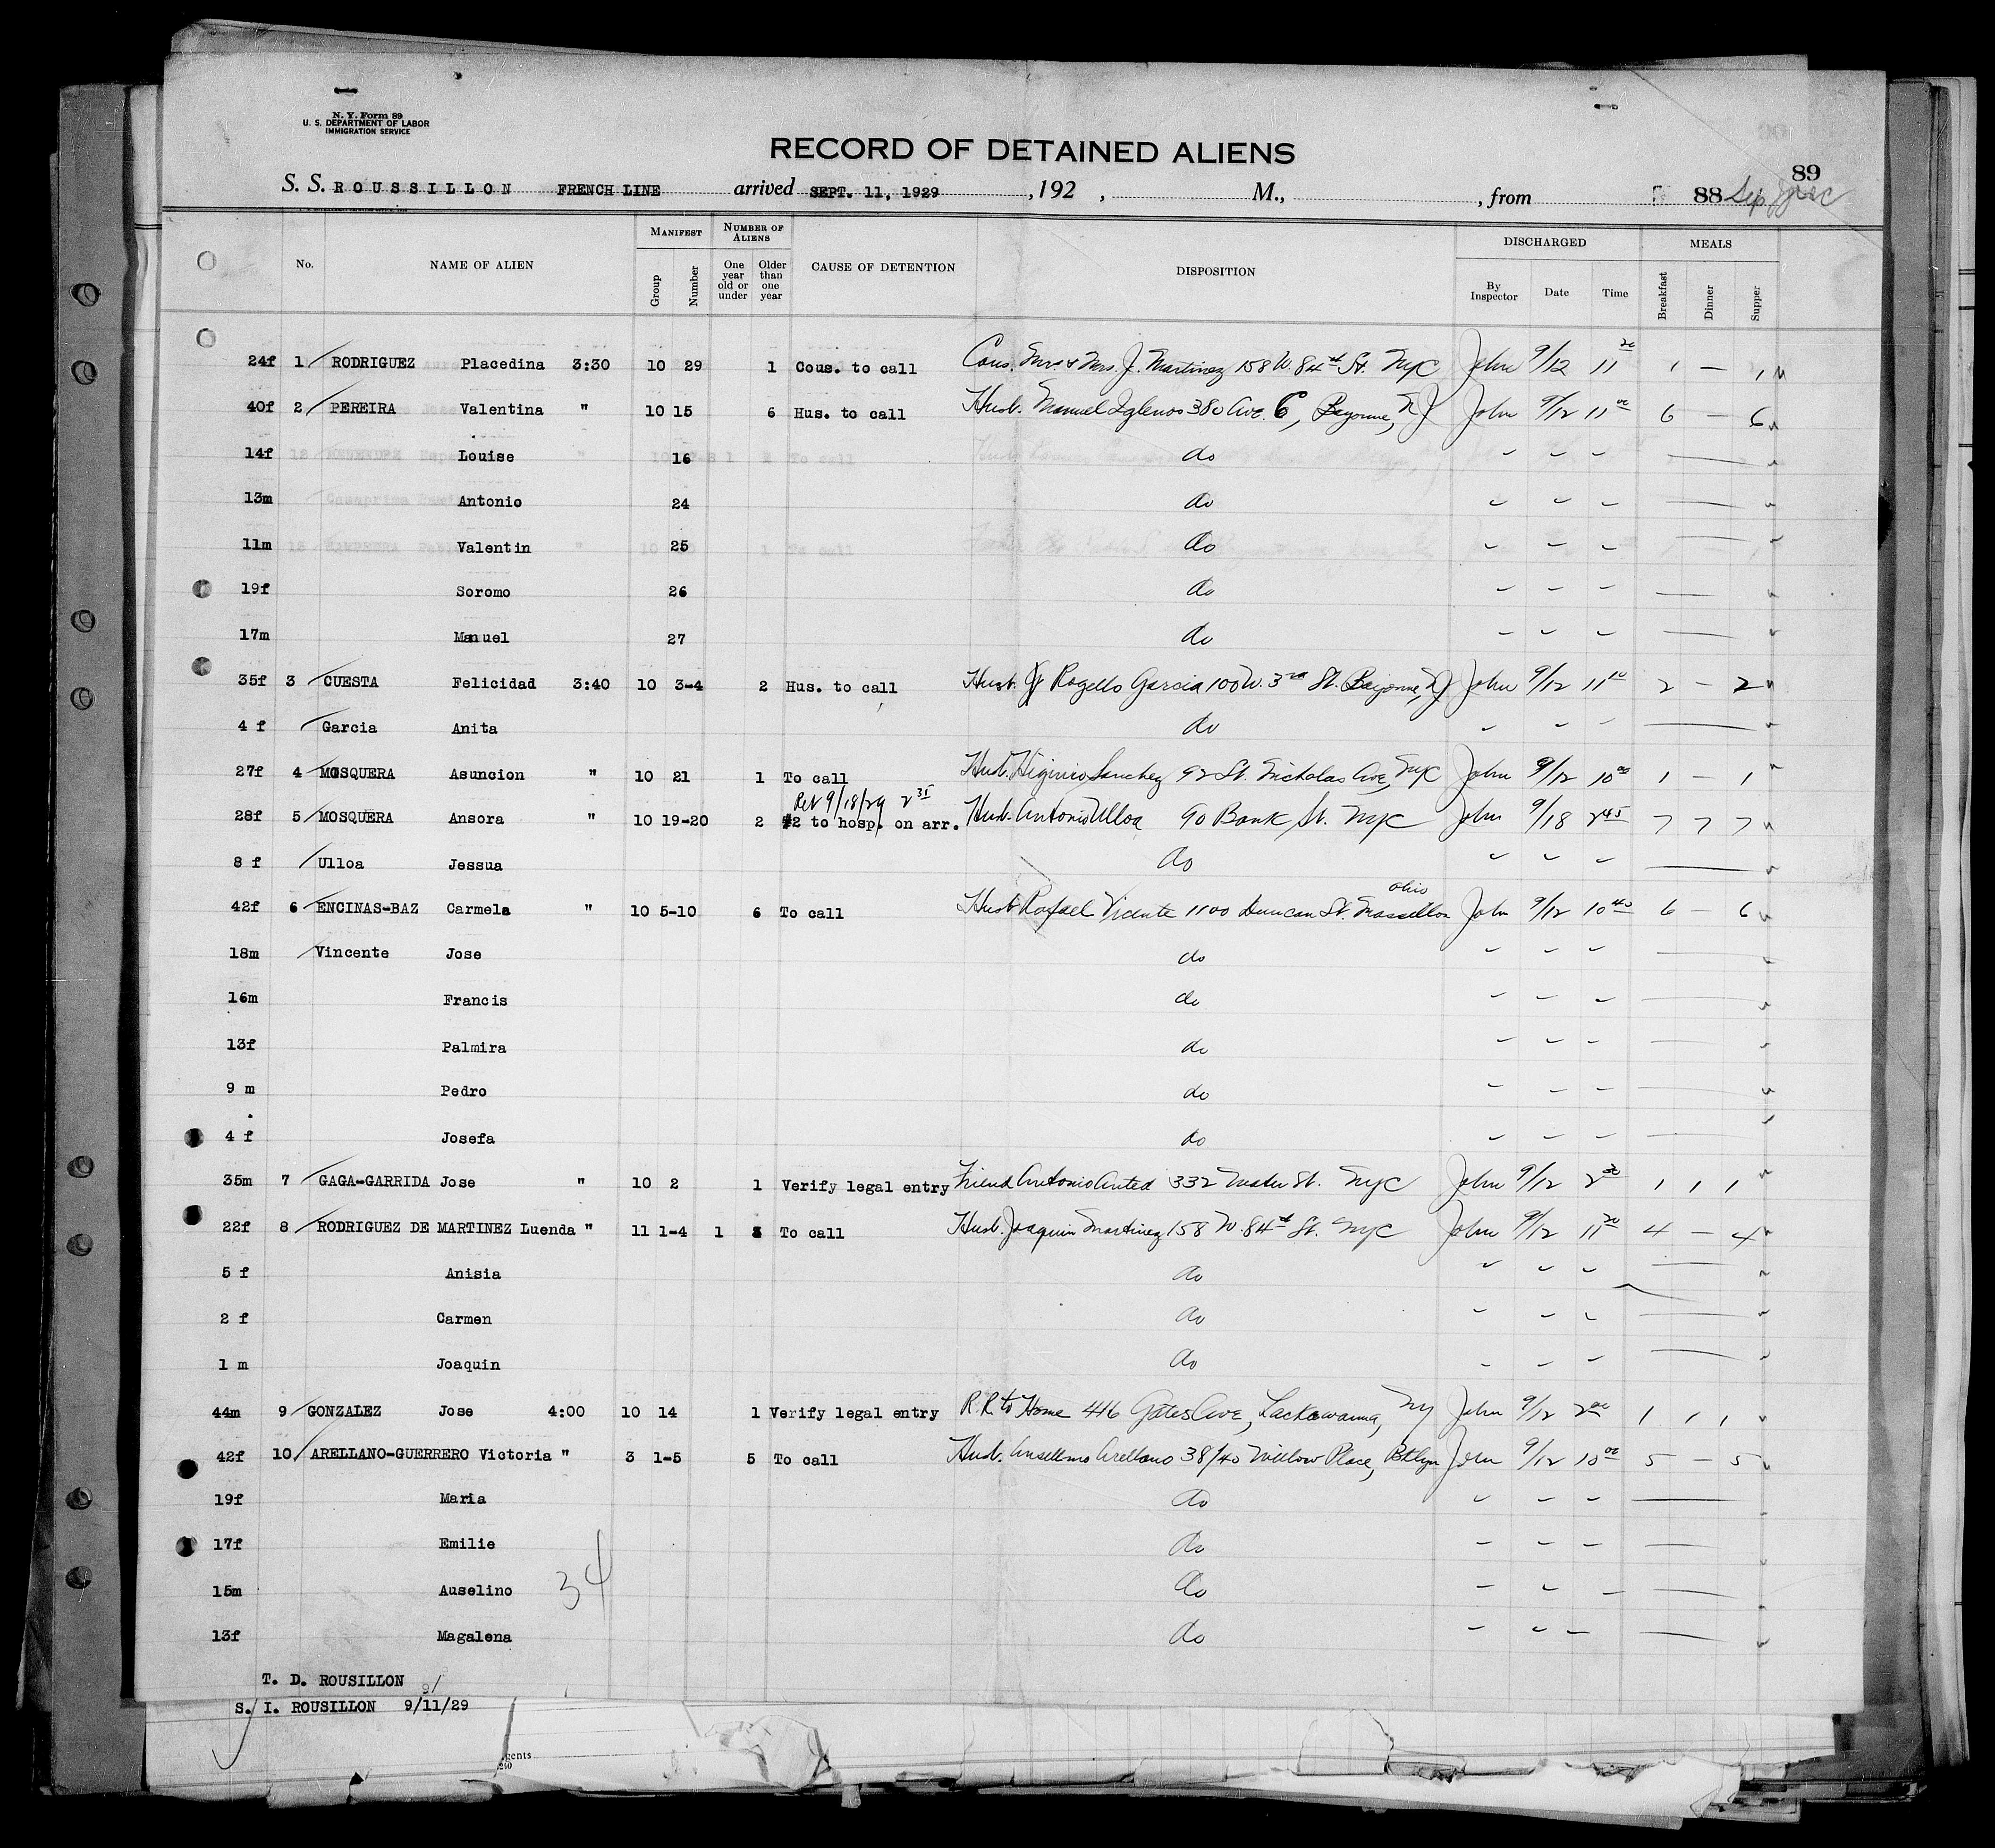 N. Y. Form 89
U. S. DEPARTMENT OF LABOR
IMMIGRATION SERVICE
RECORD OF DETAINED ALIENS
89
S. S. ROUSSILLON FRENCH LINE arrived SEPT. 11, 1929, 192 , M., , from 88 Sep.
MANIFEST NUMBER OF ALIENS DISCHARGED MEALS
No. NAME OF ALIEN Group Number One year old or under Older than one year CAUSE OF DETENTION DISPOSITION By Inspector Date Time Breakfast Dinner Supper
24f 1 RODRIGUEZ Placedina 3:30 10 29 1 Cous. to call Cous. Mr. & Mrs. J. Martinez 158 W. 84th St. NYC John 9/12 11 20 1 — 1
40f 2 PEREIRA Valentina " 10 15 6 Hus. to call Husb. Manuel Iglenos 380 Ave. C, Bayonne, NJ John 9/12 11 00 6 — 6
14f Louise 16 do
13m Antonio 24 do
11m Valentin 25 do
19f Soromo 26 do
17m Manuel 27 do
35f 3 CUESTA Felicidad 3:40 10 3-4 2 Hus. to call Husb. Rogello Garcia 100 W. 3rd St. Bayonne, NJ John 9/12 11 10 2 — 2
4 f Garcia Anita do
27f 4 MOSQUERA Asuncion " 10 21 1 To call Husb. Higinio Sanchez 92 St. Nicholas Ave, NYC John 9/12 10 00 1 — 1
Ret 9/18/29 2 35
28f 5 MOSQUERA Ansora " 10 19-20 2 #2 to hosp. on arr. Husb. Antonio Ulloa 90 Bank St. NYC John 9/18 2 45 7 7 7
8 f Ulloa Jessua do
42f 6 ENCINAS-BAZ Carmela " 10 5-10 6 To call Husb Rafael Vicente 1100 Duncan St. Massillon Ohio John 9/12 10 40 6 — 6
18m Vincente Jose do
16m Francis do
13f Palmira do
9 m Pedro do
4 f Josefa do
35m 7 GAGA-GARRIDA Jose " 10 2 1 Verify legal entry Friend Antonio Anted 332 Water St. NYC John 9/12 2 1 1 1
22f 8 RODRIGUEZ DE MARTINEZ Luenda " 11 1-4 1 3 To call Husb. Joaquin Martinez 158 W. 84th St. NYC John 9/12 11 20 4 — 4
5 f Anisia do
2 f Carmen do
1 m Joaquin do
44m 9 GONZALEZ Jose 4:00 10 14 1 Verify legal entry R.R. to Home 416 Gates Ave, Lackawanna, NY John 9/12 2 00 1 1 1
42f 10 ARELLANO-GUERRERO Victoria " 3 1-5 5 To call Husb. Ansellmo Arellano 38/40 Willow Place, Bklyn John 9/12 10 00 5 — 5
19f Maria do
17f Emilie do
15m Auselino do
34
13f Magalena do
T. D. ROUSILLON 9/
S. I. ROUSILLON 9/11/29
gents